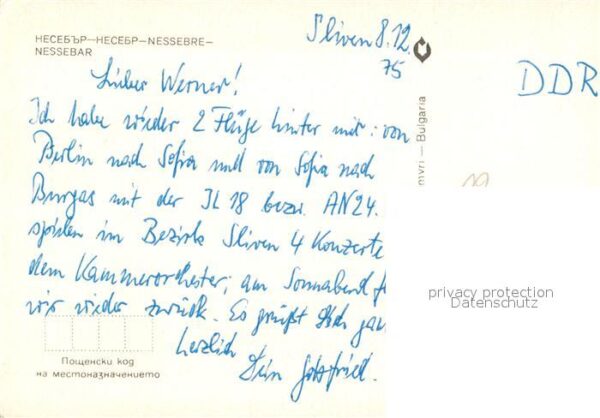 НЕСЕБЪР—НЕСЕБР—NESSEBRE—
NESSEBAR
Sliven 8.12.
75
Lieber Werner!
Ich habe wieder 2 Flüge hinter mir: von
Berlin nach Sofia und von Sofia nach
Burgas mit der IL 18 bezw. AN24.
spielen im Bezirk Sliven 4 Konzerte
dem Kammerorchester; am Sonnabend
wir wieder zurück. Es grüßt Dich
herzlich
Dein Gottfried.
DDR
Bulgaria
privacy protection
Datenschutz
Пощенски код
на местоназначението